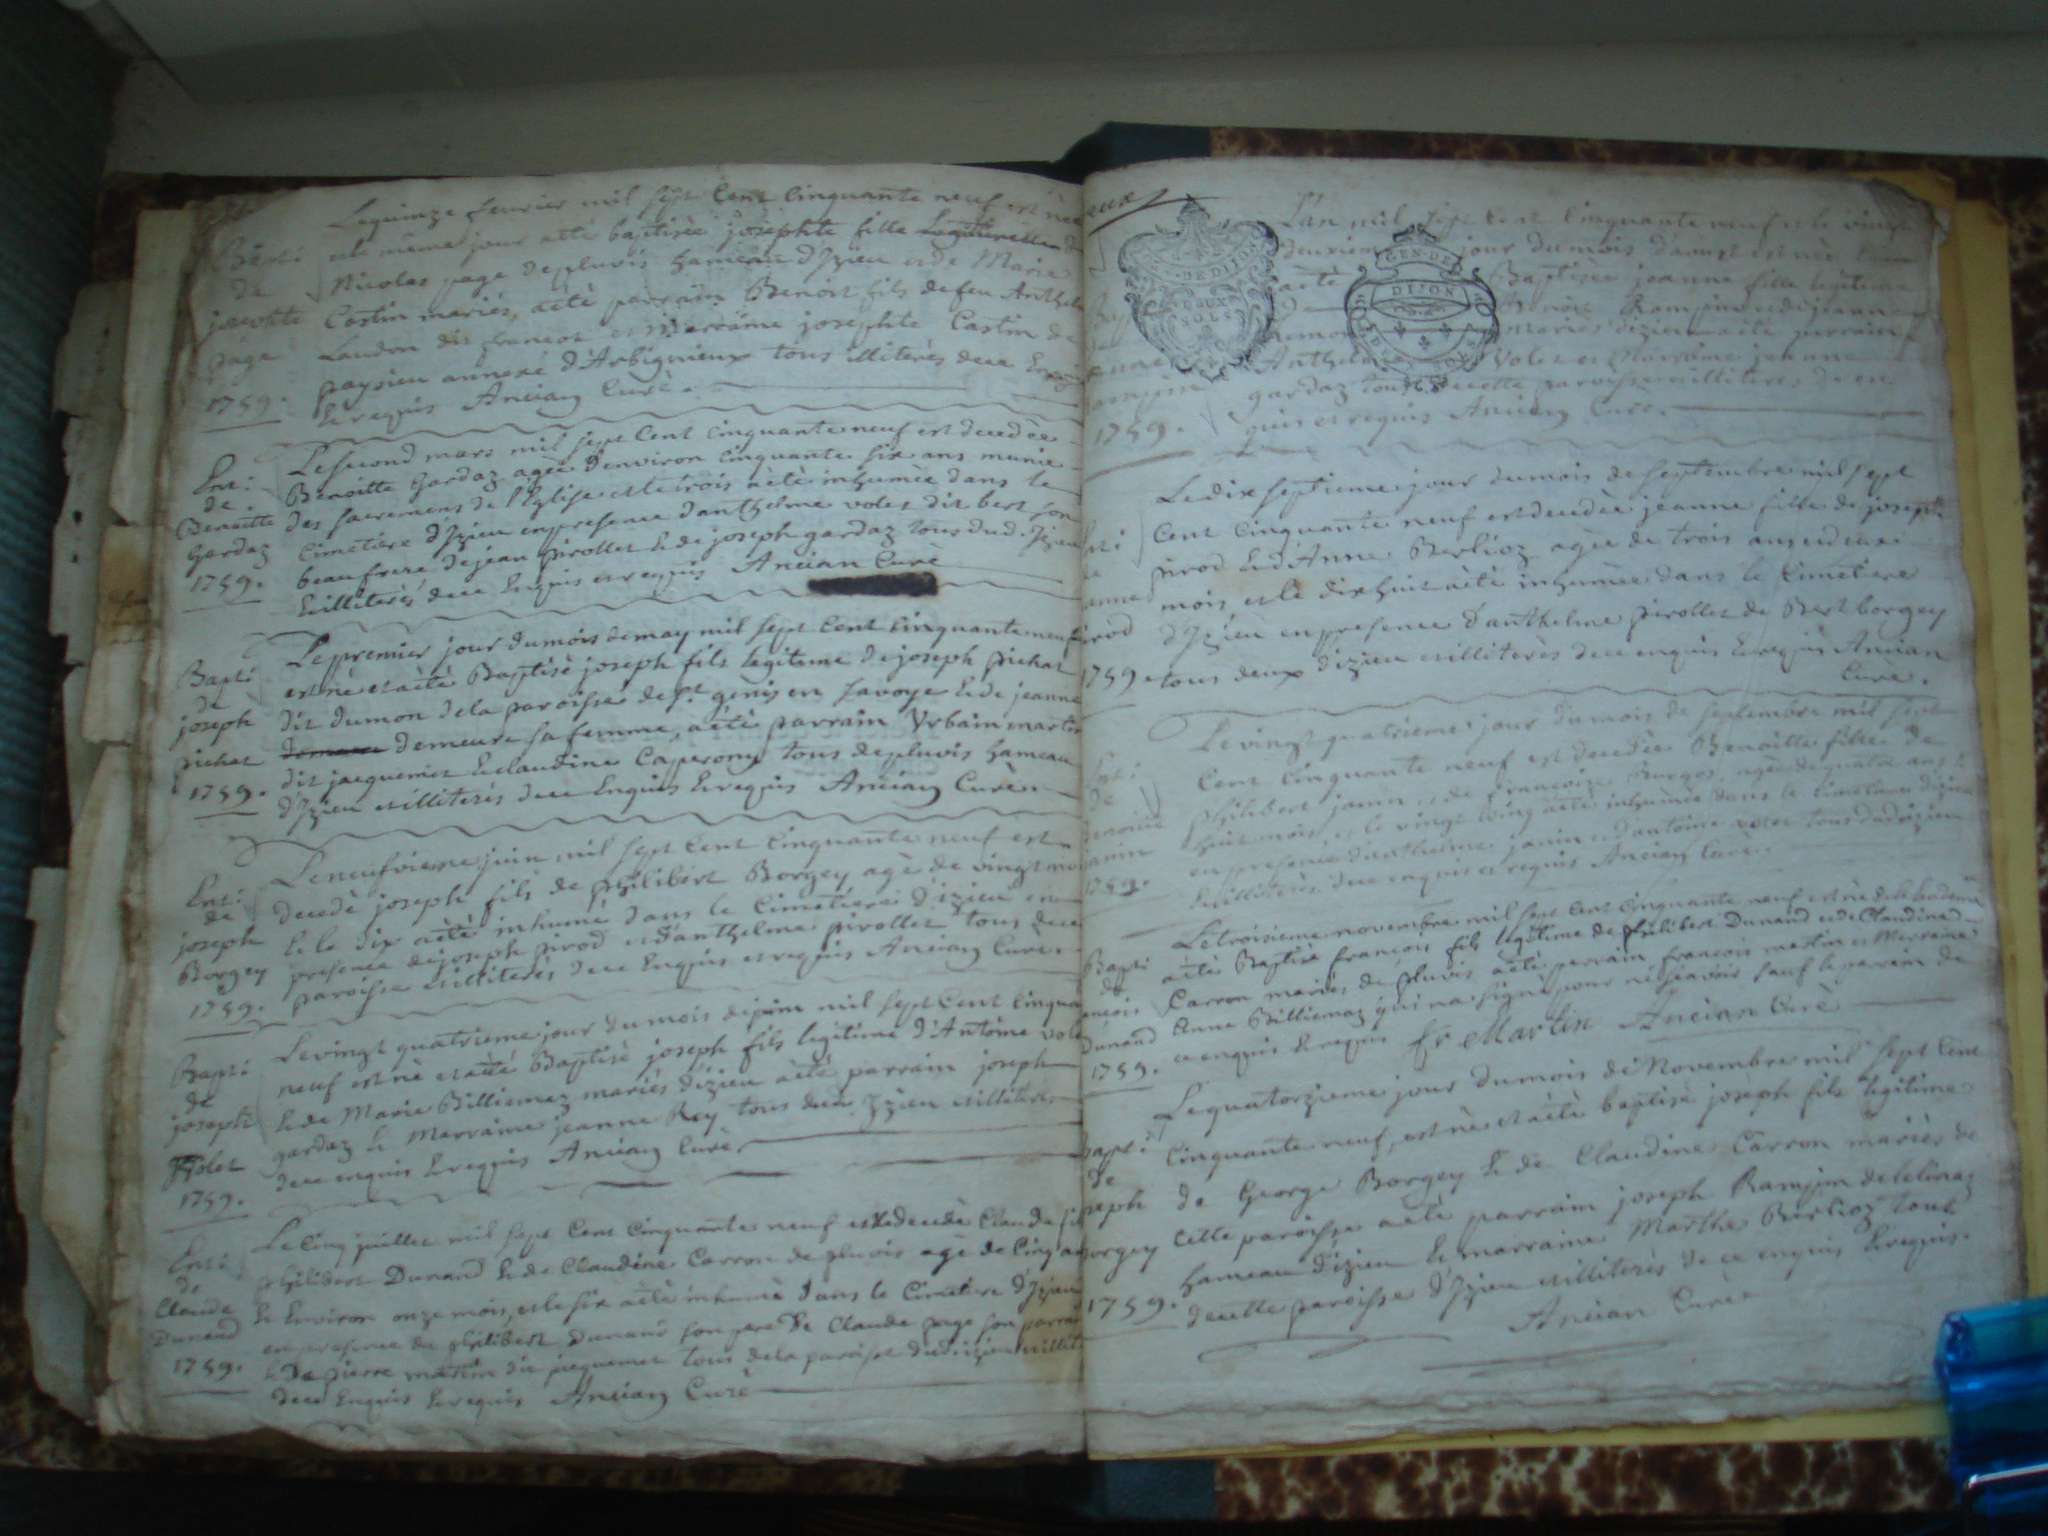 Le quinze fevrier mil sept cent cinquante neuf est née
et le même jour aété baptisée josephte fille Legitime de
Nicolas page depluvis hameau d'Izieu et de Marie
Costin mariés, aété parrain Benoit fils de feu Anthelme
Landon dit francoz et Marraine josephte Costin de
paysieu annexe d'Arbignieux tous illiterés de ce Enquis
& requis Ancian Curé.
Bapti:
de
josephte
page
1759.
Le second mars mil sept Cent Cinquante neuf est decedée
Benoitte Gardaz agée d'environ Cinquante six ans munie
des sacremens de l'Eglise et le trois aété inhumée dans le
Cimetière d'Izieu en presence d'anthelme volet dit bert son
beaufrere de jean pirollet & de joseph gardaz tous dud. Izieu
& illiterés de ce Enquis et requis Ancian Curé
Ent:
de
Benoitte
Gardaz
1759.
Le premier jour du mois de may mil sept Cent Cinquante neuf
est né et aété Baptisé joseph fils legitime de joseph pichat
dit dumon de la paroisse de St genis en Savoye & de jeanne
demeure sa femme, aété parrain Urbain martin
dit jacquemet & claudine Caperony tous depluvis hameau
d'Izieu et illiterés de ce Enquis & requis Ancian Curé
Bapti
de
joseph
pichat
1759.
Le neufvieme juin mil sept Cent Cinquante neuf est
decedé joseph fils de philibert Borgey agé de vingt mois
& le dix aété inhumé dans le Cimetiere d'izieu en
presence de joseph prod et d'anthelme pirollet tous de ce
paroisse & illiterés de ce Enquis et requis Ancian Curé
Ent:
de
joseph
Borgey
1759.
Le vingt quatrieme jour du mois de juin mil sept Cent Cinquante
neuf est né et aété Baptisé joseph fils legitime d'Antoine volet
& de Marie Billiemaz mariés d'izieu aété parrain joseph
gardaz & Marraine jeanne Rey tous dud Izieu et illiterés
de ce enquis & requis Ancian Curé
Bapt:
de
joseph
Volet
1759.
Le Cinq juillet mil sept Cent Cinquante neuf est decedé Claude fils
philibert Dunand & de Claudine Carron de pluvis agé de Cinq ans
& Environ onze mois, et le six aété inhumé dans le Cimetiere d'Izieu
en presence de philibert Dunand son pere de Claude page son parrain
& de pierre martin dit jacquemet tous de la paroisse dudit izieu & illiterés
de ce Enquis & requis Ancian Curé
Ent:
de
Claude
Dunand
1759.
GEN. DE DIJON
DEUX SOLS
L'an mil sept Cent Cinquante neuf et le vingt
deuxieme jour du mois d'aoust est née &
aété Baptisée jeanne fille legitime
Benoit Ramjon et de jeanne
mariés d'izieu aété parrain
Anthelme Volet et Marraine jeanne
gardaz tous de cette paroisse & illiterés de ce
quis et requis Ancian Curé.
1759.
Le dix septieme jour du mois de septembre mil sept
Cent Cinquante neuf est decedée jeanne fille de joseph
prod & d'Anne Berlioz agée de trois ans et deux
mois et le dix huit aété inhumée dans le Cimetiere
d'Izieu en presence d'anthelme pirollet de Bert borgey
tous deux d'izieu & illiterés de ce enquis & requis Ancian
Curé.
1759.
Le vingt quatrieme jour du mois de septembre mil sept
Cent Cinquante neuf est decedée Benoitte fille de
philibert janin et de Françoise Burgos, agée de quatre ans &
huit mois et le vingt Cinq aété inhumée dans le Cimetiere d'izieu
en presence d'anthelme janin et d'antoine volet tous dud izieu
& illiterés de ce enquis et requis Ancian Curé
1759.
Le troisieme novembre mil sept Cent Cinquante neuf est né & le lendemain
aété Baptisé francois fils legitime de philibert Dunand et de Claudine
Carron mariés de pluvis aété parrain francois martin et Marraine
Anne Billiemaz qui n'a signé pour ne sçavoir sauf le parrain de
ce enquis & requis fr Martin Ancian Curé
Bapti
de
Dunand
1759.
Le quatorzieme jour du mois de Novembre mil sept Cent
Cinquante neuf, est né et aété baptisé joseph fils legitime
de George Borgey & de Claudine Carron mariés de
cette paroisse aété parrain joseph Ramjon de lelinaz
hameau d'izieu & marraine Marthe Berlioz tous
de cette paroisse d'Izieu & illiterés de ce enquis & requis.
Ancian Curé
1759.